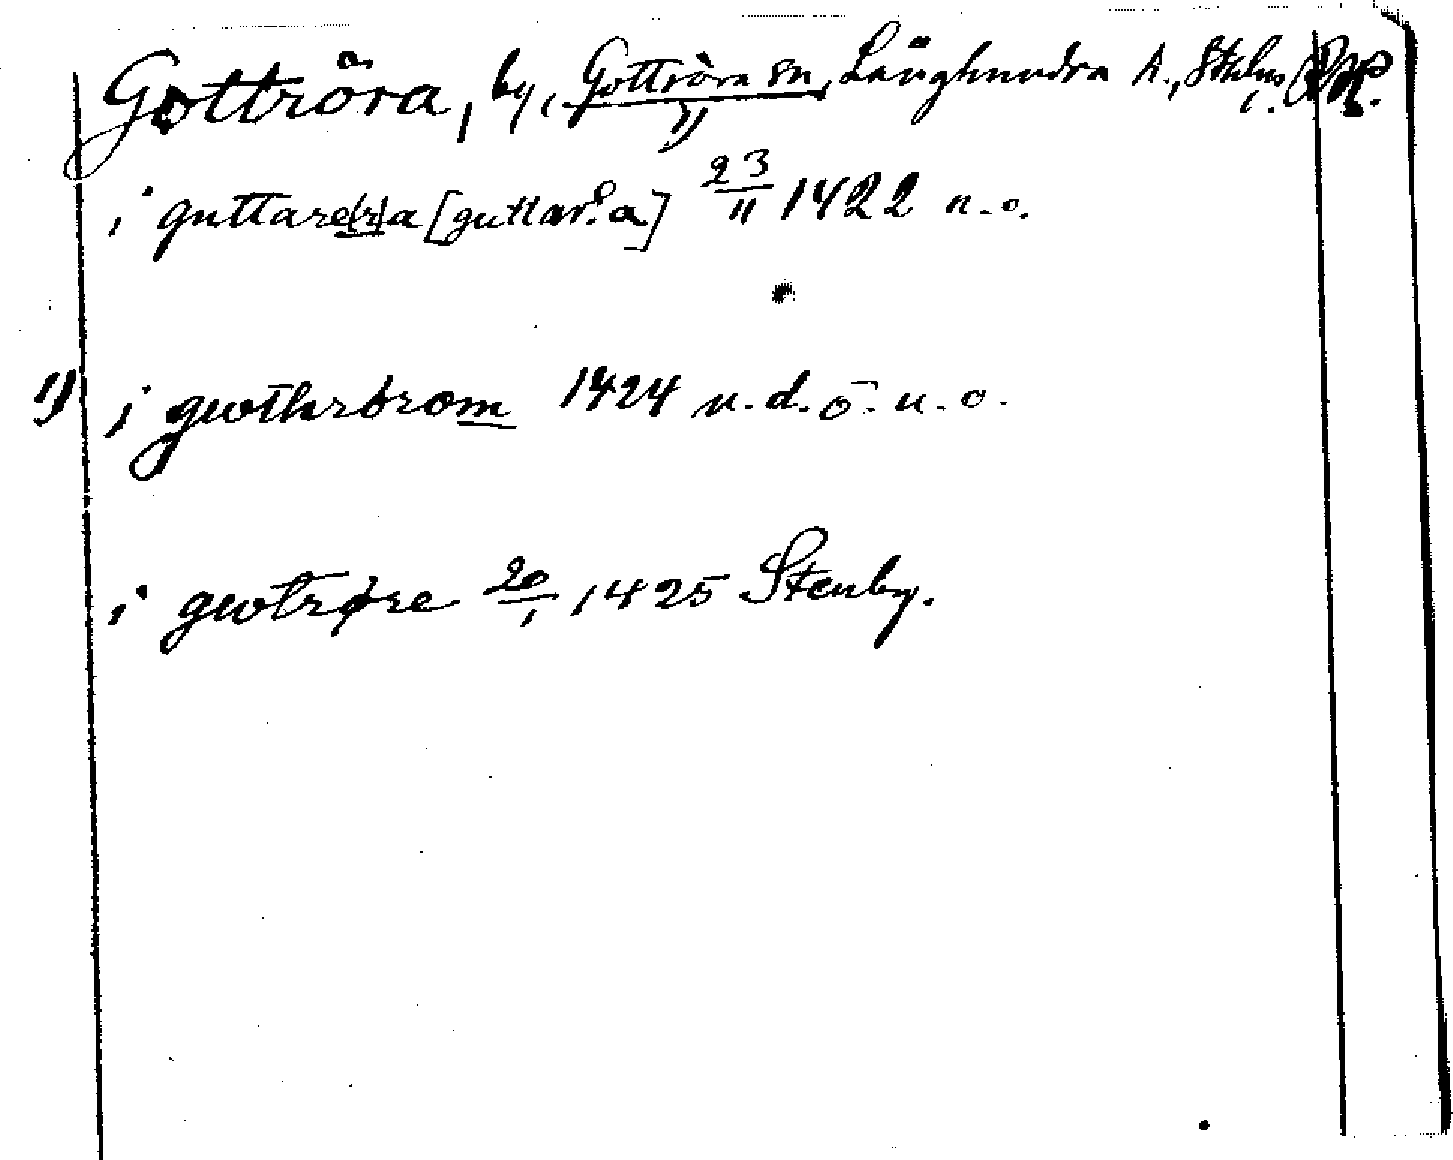 Gottröra, by, Gottröra sn, Långhundra h., Sthlms l.
1)
i guttare(r)a [guttar.a] 23/11 1422 n.o.
1) i gwthrörom 1424 u.d.o. u.o.
i gwtrøre 20/1 1425 Stenby.